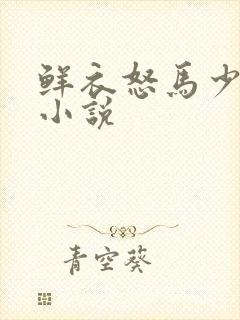 鲜衣怒馬少
小說
青空葵